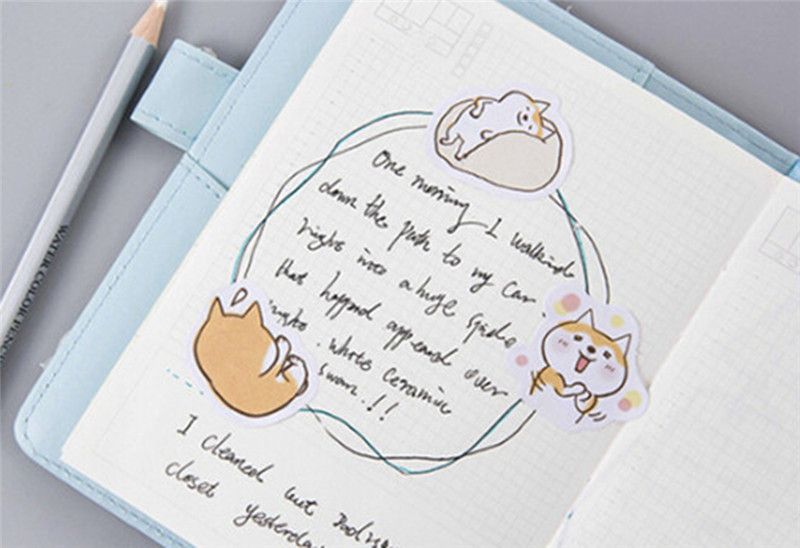 One morning I walking
down the path to my car.
right into a huge
that happed appread over
white ceramic
swan.!!
I cleaned out
closet yesterday
WATER COLOR PENCIL